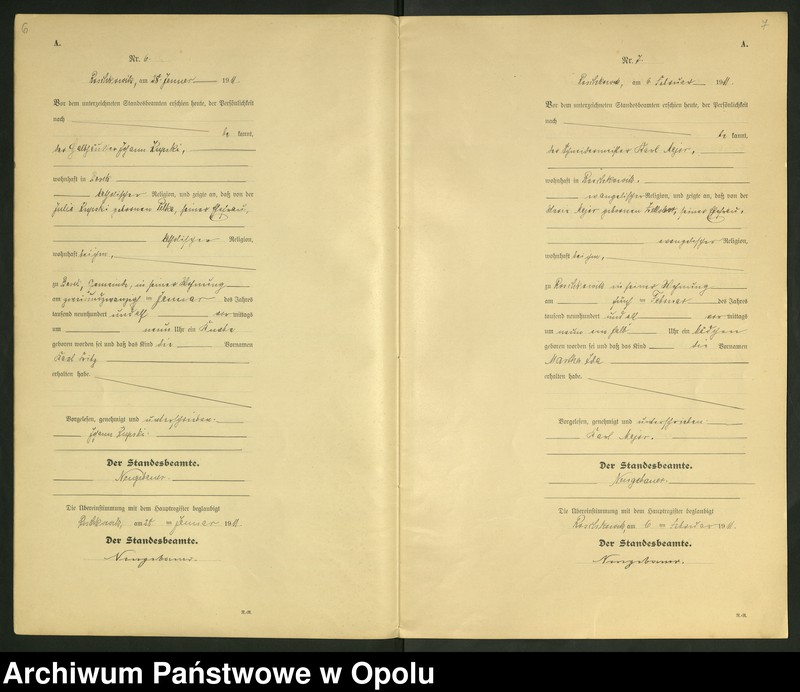 6
A.
Nr. 6.
am 28. Januar 1911.
Vor dem unterzeichneten Standesbeamten erschien heute, der Persönlichkeit
nach
be kannt,
der Johann
wohnhaft in
katholischer Religion, und zeigte an, daß von der
Julie geborenen seiner Ehefrau,
katholischer Religion,
wohnhaft bei ihm,
zu in seiner Wohnung
am Januar des Jahres
tausend neunhundert und elf vor mittags
um neun Uhr ein Knabe
geboren worden sei und daß das Kind die Vornamen
Karl Fritz
erhalten habe.
Vorgelesen, genehmigt und unterschrieben
Johann
Der Standesbeamte.
Neugebauer.
Die Übereinstimmung mit dem Hauptregister beglaubigt
am 28 ten Januar 1911.
Der Standesbeamte.
Neugebauer.
7
A.
Nr. 7
am 6. Februar 1911.
Vor dem unterzeichneten Standesbeamten erschien heute, der Persönlichkeit
nach
be kannt,
der Schneidermeister Karl
wohnhaft in
evangelischer Religion, und zeigte an, daß von der
geborenen seiner Ehefrau,
evangelischer Religion,
wohnhaft bei ihm,
zu in seiner Wohnung
am fünf ten Februar des Jahres
tausend neunhundert und elf vor mittags
um neun ein halb Uhr ein Mädchen
geboren worden sei und daß das Kind die Vornamen
Martha Ida
erhalten habe.
Vorgelesen, genehmigt und unterschrieben
Karl
Der Standesbeamte.
Neugebauer.
Die Übereinstimmung mit dem Hauptregister beglaubigt
am 6 ten Februar 1911.
Der Standesbeamte.
Neugebauer.
Archiwum Państwowe w Opolu